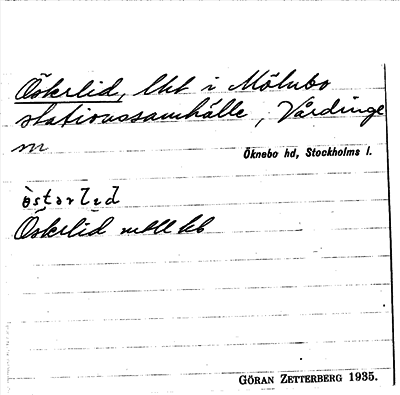 Österlid, lht i Mölnbo
stationssamhälle, Vårdinge
sn
Öknebo hd, Stockholms l.
Österlid
GÖRAN ZETTERBERG 1935.